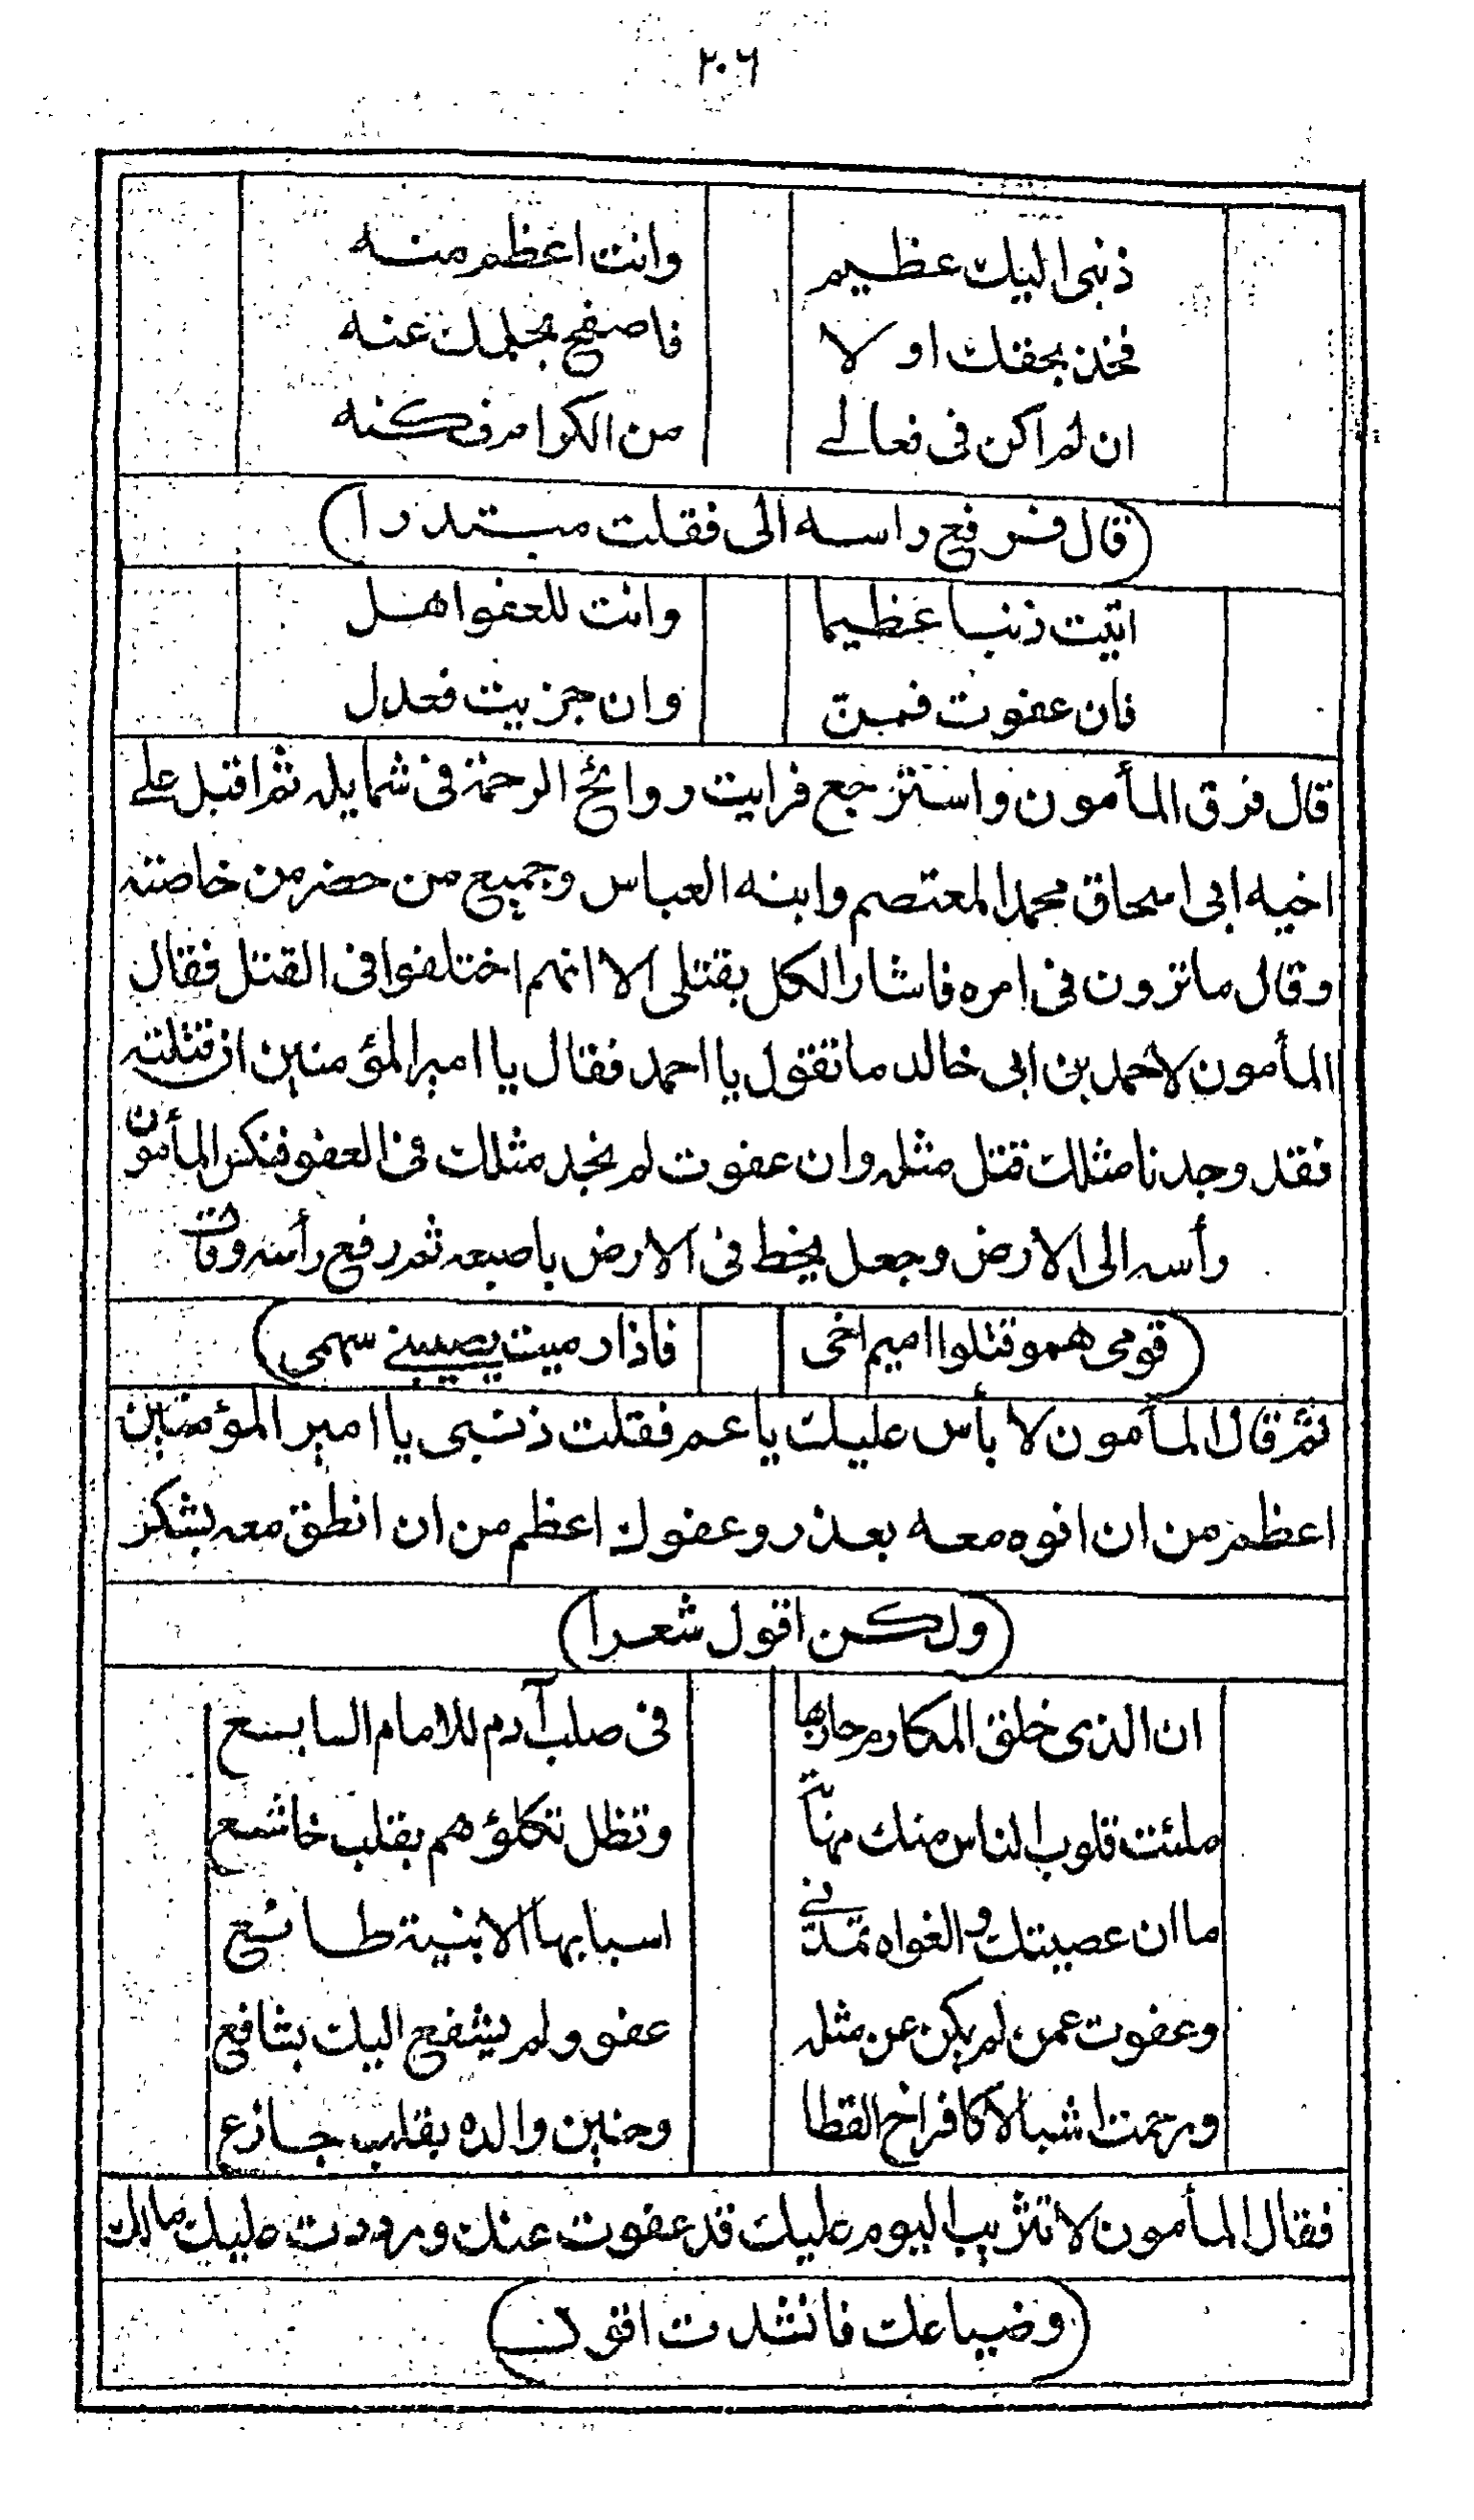 ٢٠٦
ذنبى اليك عظيم وانت اعظم منه
فخذ بحقك او لا فاصفح بحلمك عنه
ان لم اكن فى فعالے من الكرام فكنه
(قال فرفع راسه الى فقلت مبتدرا)
اتيت ذنبا عظيما وانت للعفو اهل
فان عفوت فمن وان جزيت فعدل
قال فرق المأمون واسترجع فرايت روائح الرحمة فى شمايله ثم اقبل علے
اخيه ابى اسحاق محمد المعتصم وابنه العباس وجميع من حضر من خاصته
وقال ما ترون فى امره فاشار الكل بقتلى الا انهم اختلفوا فى القتل فقال
المأمون لأحمد بن ابى خالد ما تقول يا احمد فقال يا امير المؤمنين ان قتلته
فقد وجدنا مثلك قتل مثله وان عفوت لم نجد مثلك فى العفو فنكر المأمون
رأسه الى الارض وجعل يخط فى الارض باصبعه ثم رفع رأسه وقال
(قومى همو قتلوا اميم اخى فاذا رميت يصيبنے سهمى)
ثم قال المأمون لا بأس عليك يا عم فقلت ذنبى يا امير المؤمنين
اعظم من ان افوه معه بعذر وعفوك اعظم من ان انطق معه بشكر
(ولكن اقول شعرا)
ان الذى خلق المكارم حازها فى صلب آدم للامام السابع
ملئت قلوب الناس منك مهابة وتظل تكلؤهم بقلب خاشع
ما ان عصيتك والغواه تمدنے اسبابها الا بنية طائع
وعفوت عمن لم يكن عن مثله عفو ولم يشفع اليك بشافع
ورحمت اشبالا كافراخ القطا وحنين والده بقلب جازع
فقال المأمون لا تثريب اليوم عليك قد عفوت عنك ورددت عليك مالك
(وضياعك فانشدت اقول)